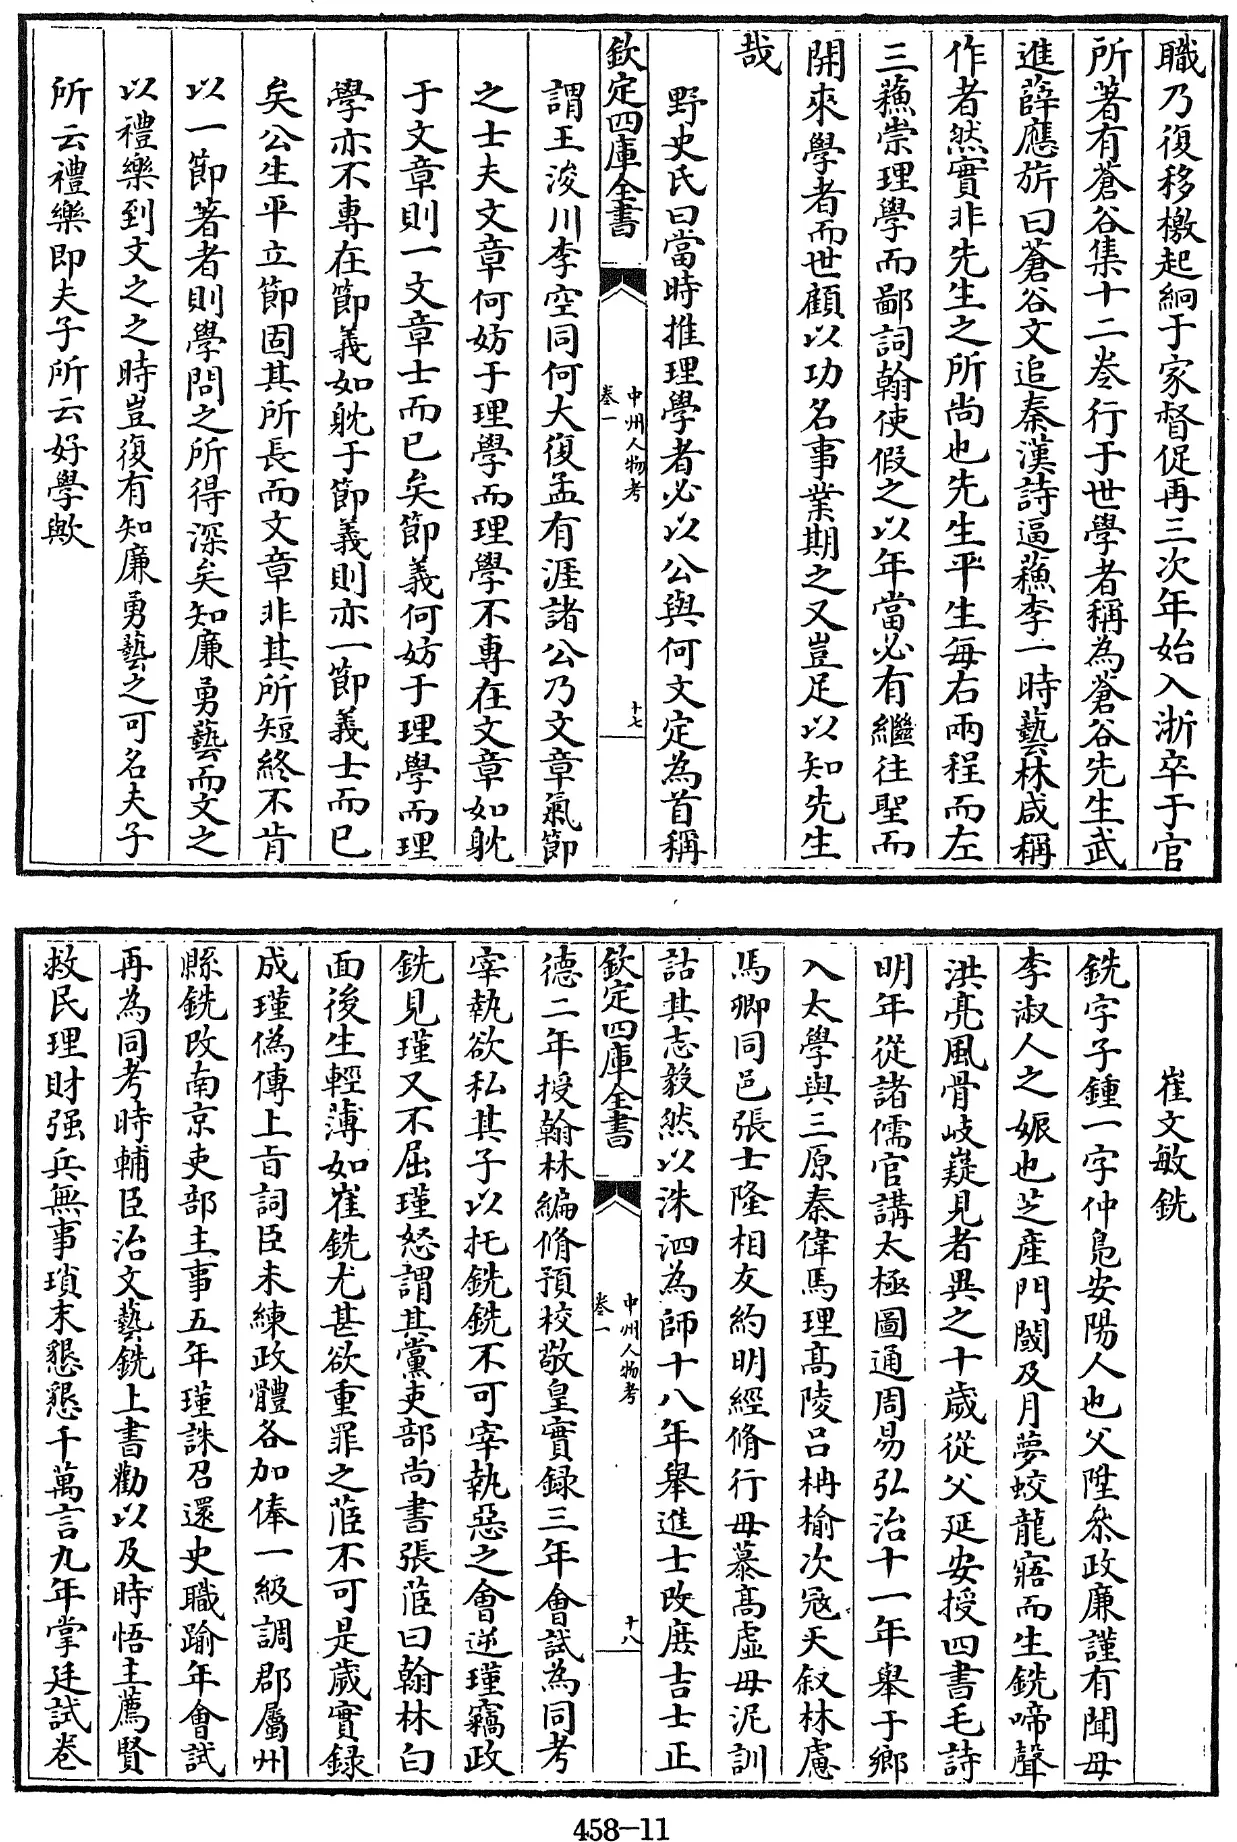 職乃復移檄起綗于家督促再三次年始入浙卒于官
所著有蒼谷集十二卷行于世學者稱為蒼谷先生武
進薛應旂曰蒼谷文追秦漢詩逼蘓李一時藝林咸稱
作者然實非先生之所尚也先生平生每右兩程而左
三蘓崇理學而鄙詞翰使假之以年當必有繼往聖而
開來學者而世顧以功名事業期之又豈足以知先生
哉
野史氏曰當時推理學者必以公與何文定為首稱
欽定四庫全書
中州人物考
卷一
十七
謂王浚川李空同何大復孟有涯諸公乃文章氣節
之士夫文章何妨于理學而理學不專在文章如躭
于文章則一文章士而已矣節義何妨于理學而理
學亦不專在節義如躭于節義則亦一節義士而已
矣公生平立節固其所長而文章非其所短終不肯
以一節著者則學問之所得深矣知廉勇藝而文之
以禮樂到文之之時豈復有知廉勇藝之可名夫子
所云禮樂即夫子所云好學歟
崔文敏銑
銑字子鍾一字仲鳧安陽人也父陞叅政廉謹有聞母
李淑人之娠也芝產門閾及月夢蛟龍寤而生銑啼聲
洪亮風骨岐嶷見者異之十歲從父延安授四書毛詩
明年從諸儒官講太極圖通周易弘治十一年舉于鄉
入太學與三原秦偉馬理髙陵吕柟榆次冦天叙林慮
馬卿同邑張士隆相友約明經脩行毋慕髙虛毋泥訓
詁其志毅然以洙泗為師十八年舉進士改庶吉士正
欽定四庫全書
中州人物考
卷一
十八
德二年授翰林編脩預校敬皇實録三年會試為同考
宰執欲私其子以托銑銑不可宰執惡之會逆瑾竊政
銑見瑾又不屈瑾怒謂其黨吏部尚書張䌽曰翰林白
面後生輕薄如崔銑尤甚欲重罪之䌽不可是歲實録
成瑾偽傳上旨詞臣未練政體各加俸一級調郡屬州
縣銑改南京吏部主事五年瑾誅召還史職踰年會試
再為同考時輔臣治文藝銑上書勸以及時悟主薦賢
救民理財强兵無事瑣末懇懇千萬言九年掌廷試卷
458-11